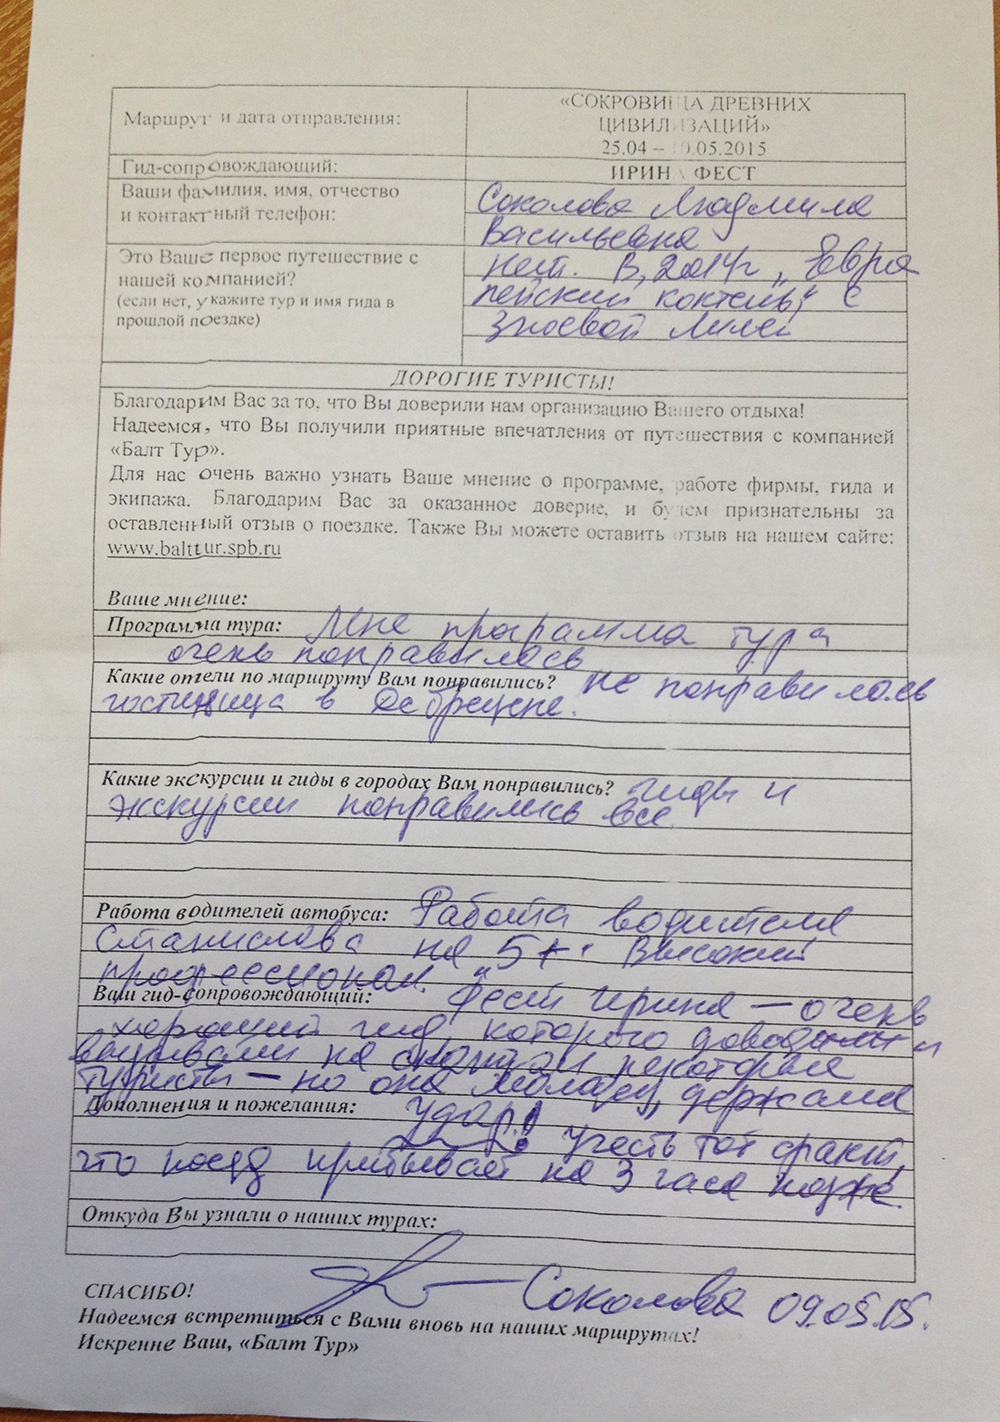 Маршрут и дата отправления:
«СОКРОВИЩА ДРЕВНИХ
ЦИВИЛИЗАЦИЙ»
25.04 – 10.05.2015
Гид-сопровождающий:
ИРИНА ФЕСТ
Ваши фамилия, имя, отчество
и контактный телефон:
Соколова Людмила
Васильевна
Это Ваше первое путешествие с
нашей компанией?
(если нет, укажите тур и имя гида в
прошлой поездке)
Нет. В 2014г „Евро
пейский коктейль“ с
Зноевой Лилей
ДОРОГИЕ ТУРИСТЫ!
Благодарим Вас за то, что Вы доверили нам организацию Вашего отдыха!
Надеемся, что Вы получили приятные впечатления от путешествия с компанией
«Балт Тур».
Для нас очень важно узнать Ваше мнение о программе, работе фирмы, гида и
экипажа. Благодарим Вас за оказанное доверие, и будем признательны за
оставленный отзыв о поездке. Также Вы можете оставить отзыв на нашем сайте:
www.balttur.spb.ru
Ваше мнение:
Программа тура: Мне программа тура
очень понравилась
Какие отели по маршруту Вам понравились? не понравилась
гостиница в Дебрецене.
Какие экскурсии и гиды в городах Вам понравились? гиды и
экскурсии понравились все
Работа водителей автобуса: Работа водителя
Станислава на 5+. Высокий
профессионал.
Ваш гид-сопровождающий: Фест Ирина — очень
хороший гид, которого доводили и
вызывали на скандал некоторые
туристы — но она молодец, держала
удар!
Дополнения и пожелания:
Учесть тот факт,
что поезд прибывает на 3 часа позже.
Откуда Вы узнали о наших турах:
СПАСИБО!
Соколова 09.05.15.
Надеемся встретиться с Вами вновь на наших маршрутах!
Искренне Ваш, «Балт Тур»